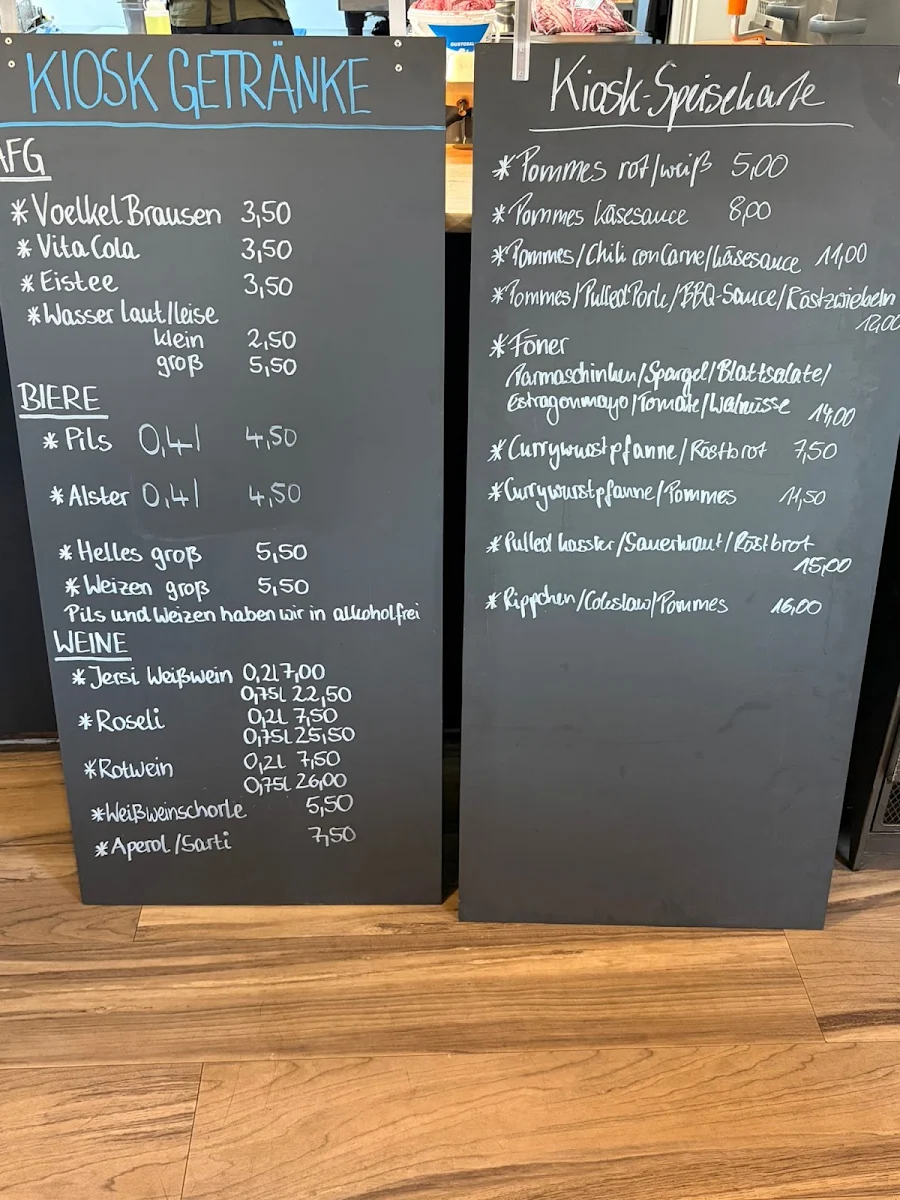 KIOSK GETRÄNKE
AFG
* Voelkel Brausen 3,50
* Vita Cola 3,50
* Eistee 3,50
* Wasser laut/leise
klein 2,50
groß 5,50
BIERE
* Pils 0,4l 4,50
* Alster 0,4l 4,50
* Helles groß 5,50
* Weizen groß 5,50
Pils und Weizen haben wir in alkoholfrei
WEINE
* Jersi Weißwein 0,2l 7,00
0,75l 22,50
* Roseli 0,2l 7,50
0,75l 25,50
* Rotwein 0,2l 7,50
0,75l 26,00
* Weißweinschorle 5,50
* Aperol/Sarti 7,50
Kiosk-Speisekarte
* Pommes rot/weiß 5,00
* Pommes Käsesauce 8,00
* Pommes/Chili con Carne/Käsesauce 11,00
* Pommes/Pulled Pork/BBQ-Sauce/Röstzwiebeln
12,00
* Föner
Parmaschinken/Spargel/Blattsalate/
Estragonmayo/Tomate/Walnüsse 14,00
* Currywurstpfanne/Röstbrot 7,50
* Currywurstpfanne/Pommes 11,50
* Pulled Kassler/Sauerkraut/Röstbrot
15,00
* Rippchen/Coleslaw/Pommes 16,00